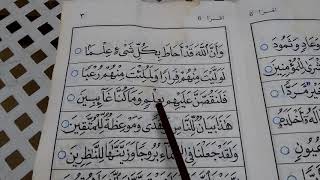 ٣ اقرأ 6
وَأَنَّ اللّٰهَ قَدْ أَحَاطَ بِكُلِّ شَيْءٍ عِلْمًا
لَوَلَّيْتَ مِنْهُمْ فِرَارًا وَلَمُلِئْتَ مِنْهُمْ رُعْبًا
فَلَنَقُصَّنَّ عَلَيْهِمْ بِعِلْمٍ وَمَا كُنَّا غَآئِبِيْنَ
هٰذَا بَيَانٌ لِلنَّاسِ وَهُدًى وَمَوْعِظَةٌ لِلْمُتَّقِيْنَ
وَلَقَدْ جَعَلْنَا فِي السَّمَآءِ بُرُوْجًا وَزَيَّنّٰهَا لِلنّٰظِرِيْنَ
اقرأ 6
وَعَادٍ وَثَمُوْدَ
لِلْمُؤْمِنِيْنَ